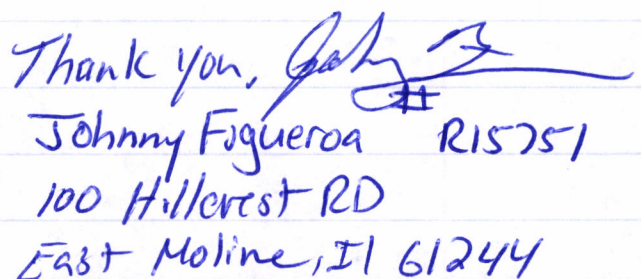 Thank you,
#
Johnny Figueroa R15751
100 Hillcrest RD
East Moline, Il 61244